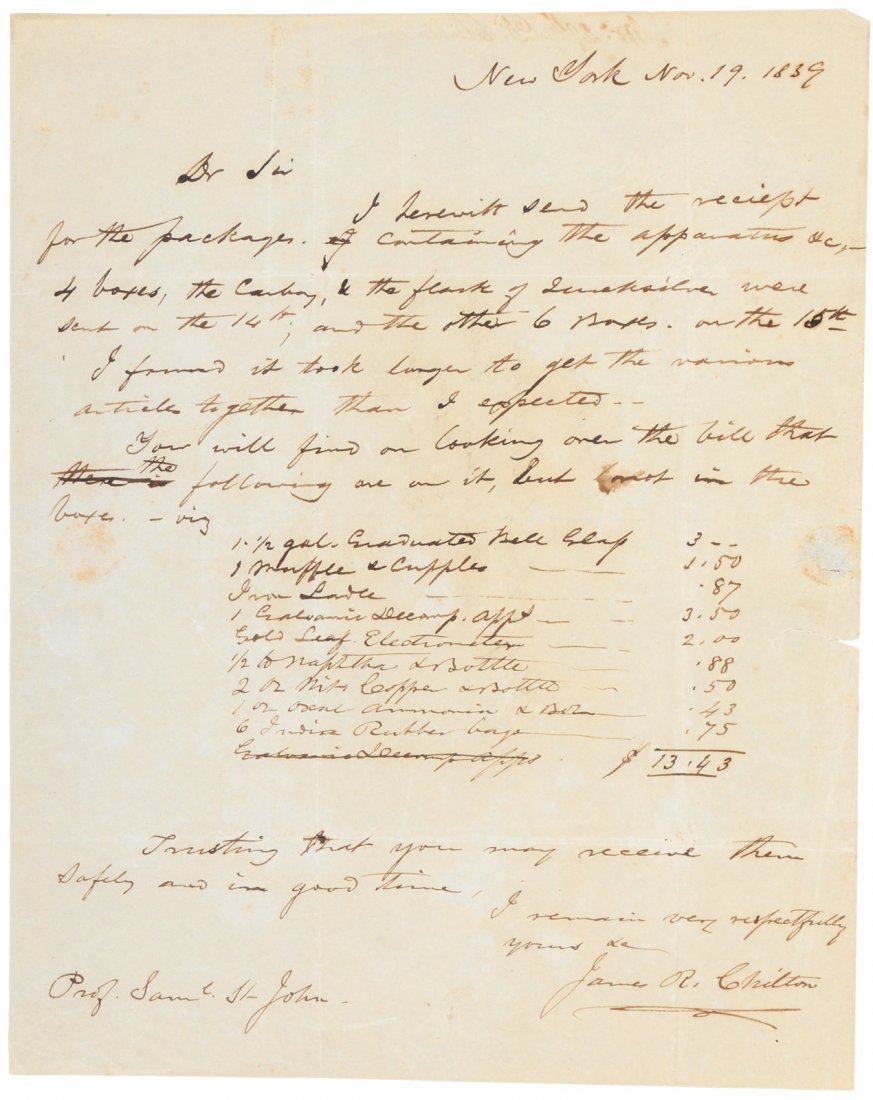 New York Nov. 19. 1839
Dr Sir
I herewith send the reciept
for the packages. of containing the apparatus &c,—
4 boxes, the Carboy, & the flask of Quicksilver were
sent on the 14th; and the other 6 Boxes. on the 15th
I found it took longer to get the various
articles together than I expected--
You will find on looking over the bill that
there is the following are on it, but not in the
boxes. - viz
1. 1/2 gal. Graduated Bell Glass 3 --
1 Muffle & Cupples 1.50
Iron Ladle .87
1 Galvanic Decomp. App 3.50
Gold Leaf Electrometer 2.00
1/2 lb Naphtha & Bottle .88
2 oz Nit. Copper & Bottle .50
1 oz Oxal Ammonia & Bot .43
6 India Rubber bags .75
Galvanic Decomp Apps $ 13.43
Trusting that you may receive them
safely and in good time,
I remain very respectfully
yours &c
James R. Chilton
Prof. Saml. St John.